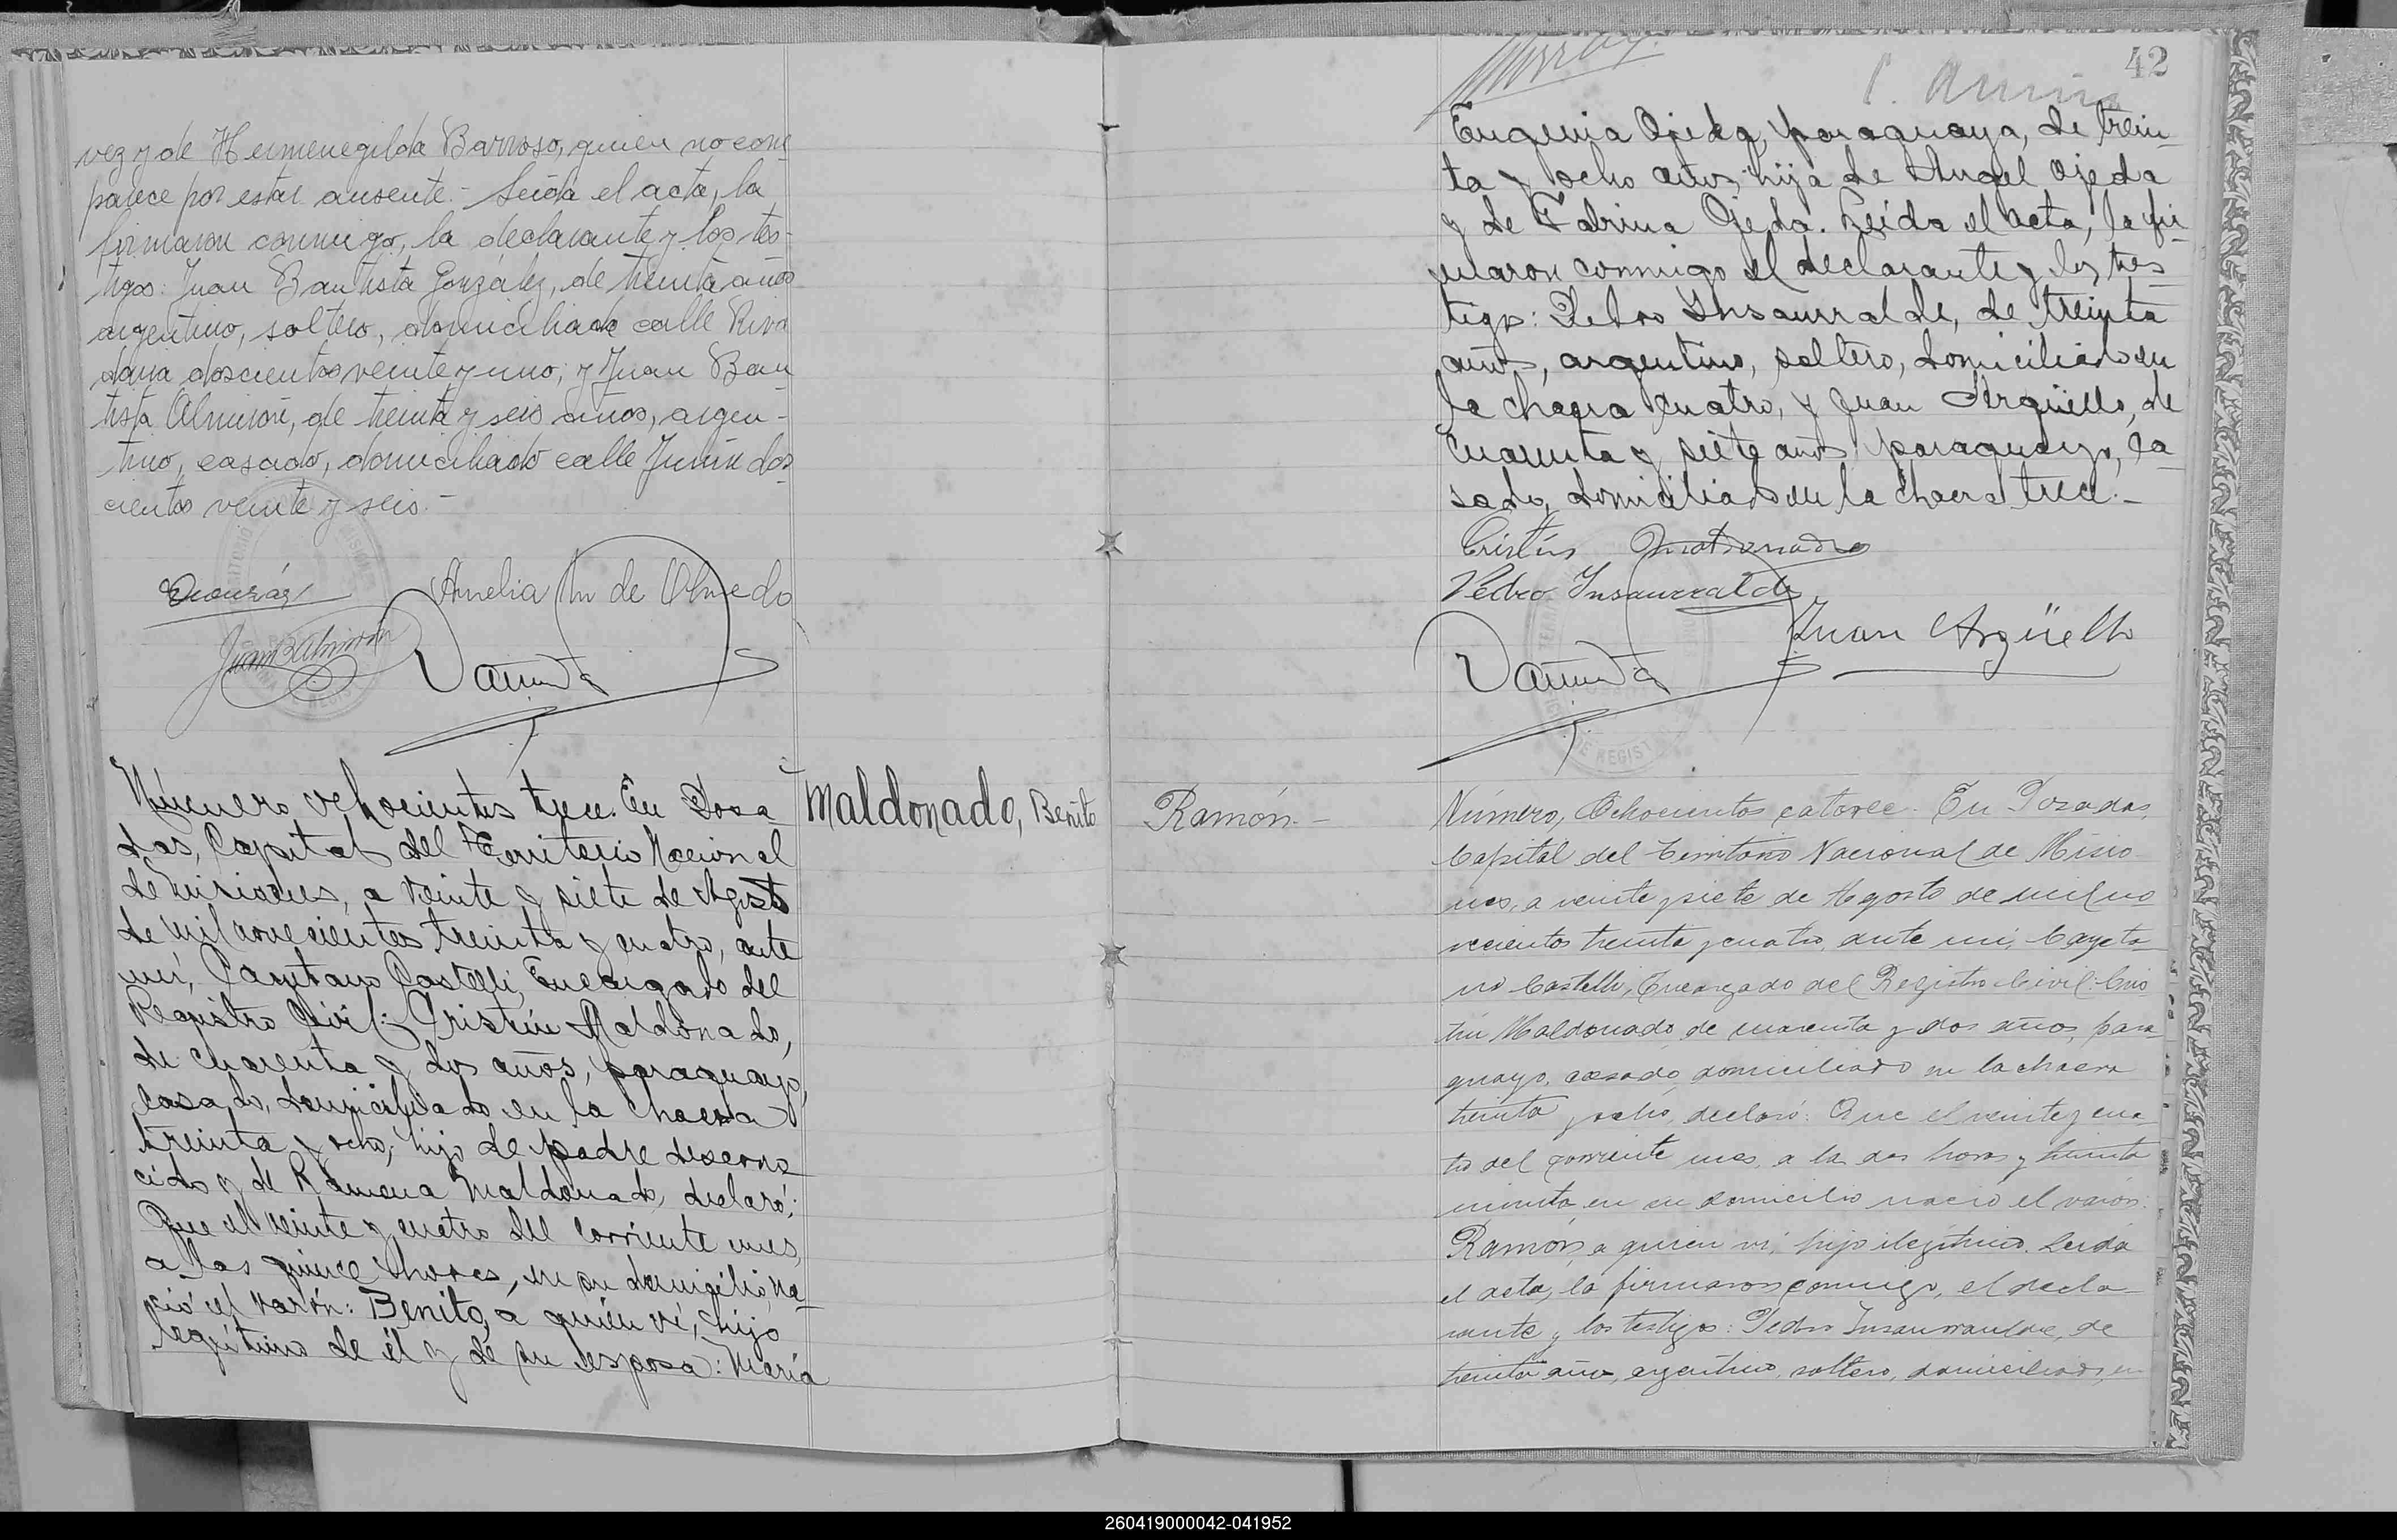 vez y de Hermenegilda Barroso, quien no com-
parece por estar ausente.- Leída el acta, la
firmaron conmigo, la declarante y los tes-
tigos: Juan Bautista González, de treinta años
argentino, soltero, domiciliado calle Riva
davia doscientos veinte y uno; y Juan Bau
tista Almirón, de treinta y seis años, argen-
tino, casado, domiciliado calle Junín dos
cientos veinte y seis.-
Amelia M de Olmedo
Juan B Almirón
Número ochocientos trece. En Posa
das, Capital del Territorio Nacional
de Misiones, a veinte y siete de Agosto
de mil novecientos treinta y cuatro, ante
mí, Cayetano Castelli, Encargado del
Registro Civil: Cristín Maldonado,
de cuarenta y dos años, paraguayo,
casado, domiciliado en la chacra
treinta y ocho, hijo de padre descono
cido y de Ramona Maldonado, declaró:
Que el veinte y cuatro del corriente mes,
a las quince horas, en su domicilio, na-
ció el varón: Benito, a quién ví, hijo
legítimo de él y de su esposa: María
Maldonado, Benito
42
Eugenia Ojeda, paraguaya, de trein
ta y ocho años, hija de Angel Ojeda
y de Fabrina Ojeda. Leída el acta, la fir
maron conmigo el declarante y los tes-
tigos: Pedro Insaurralde, de treinta
años, argentino, soltero, domiciliado en
la chacra cuatro, y Juan Argüello, de
cuarenta y siete años, paraguayo, ca-
sado, domiciliado en la chacra trece.-
Cristín Maldonado
Pedro Insaurralde
Juan Argüello
Ramón.-
Número, Ochocientos catorce. En Posadas,
Capital del Territorio Nacional de Misio-
nes, a veinte y siete de Agosto de mil no
vecientos treinta y cuatro, ante mí, Cayeta
no Castelli, Encargado del Registro Civil: Cris
tín Maldonado de cuarenta y dos años, para-
guayo, casado, domiciliado en la chacra
treinta y ocho, declaró: Que el veinte y cua
tro del corriente mes, a las dos horas y treinta
minutos en su domicilio nació el varón:
Ramón, a quien ví, hijo ilegítimo. Leída
el acta, la firmaron conmigo, el decla-
rante y los testigos: Pedro Insaurralde, de
treinta años, argentino, soltero, domiciliado, en
260419000042-041952